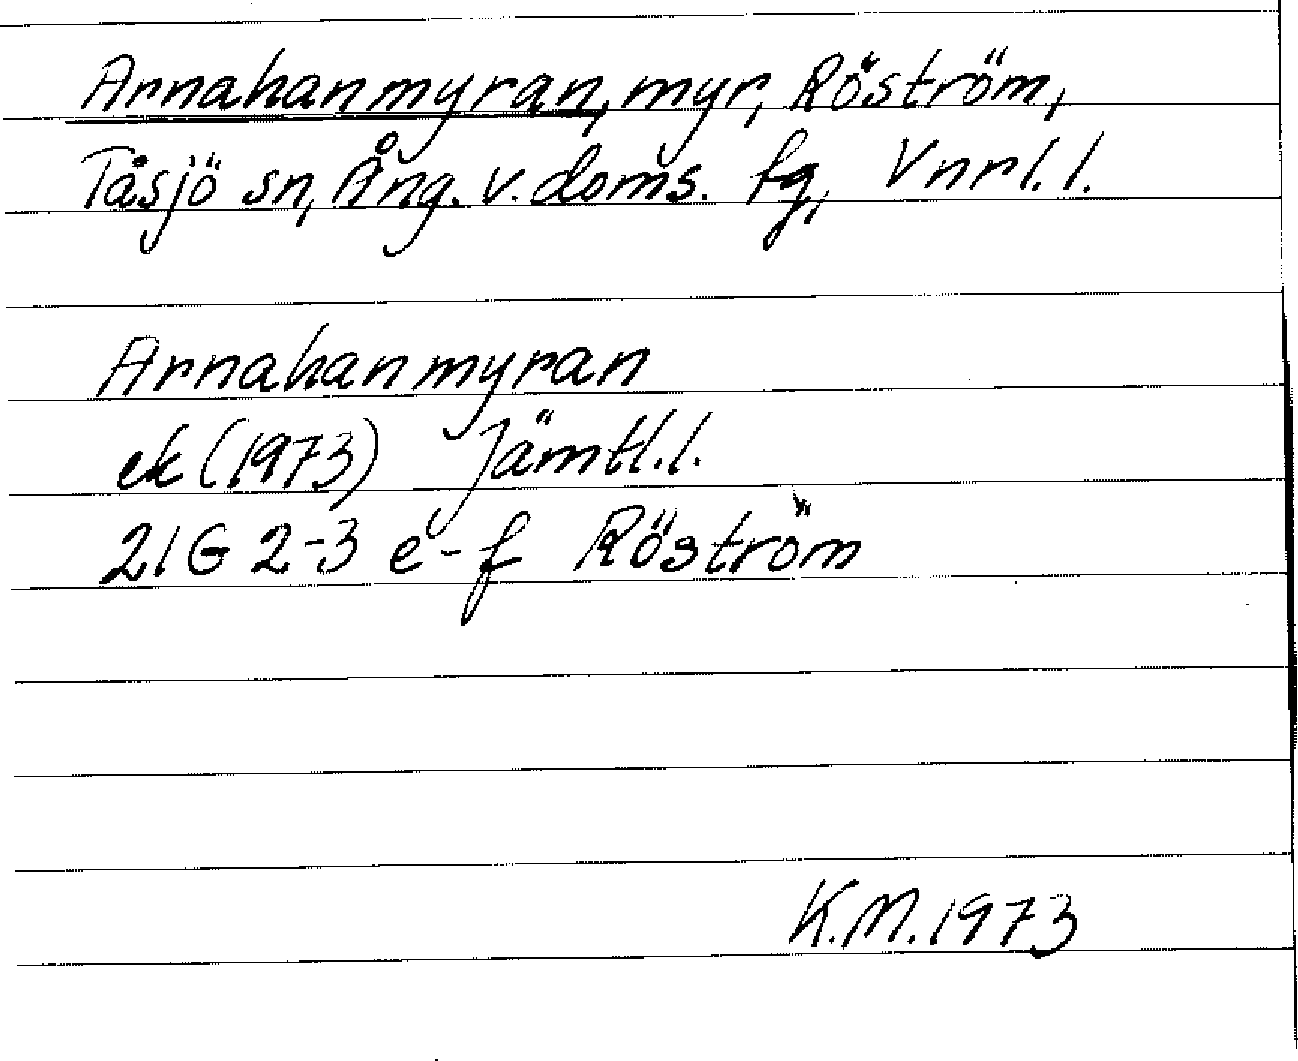 Arnahanmyran, myr, Röström,
Tåsjö sn, Ång. v. doms. fg, Vnrl. l.
Arnahanmyran
ek (1973) Jämtl. l.
21G 2-3 e-f Röström
K.M. 1973